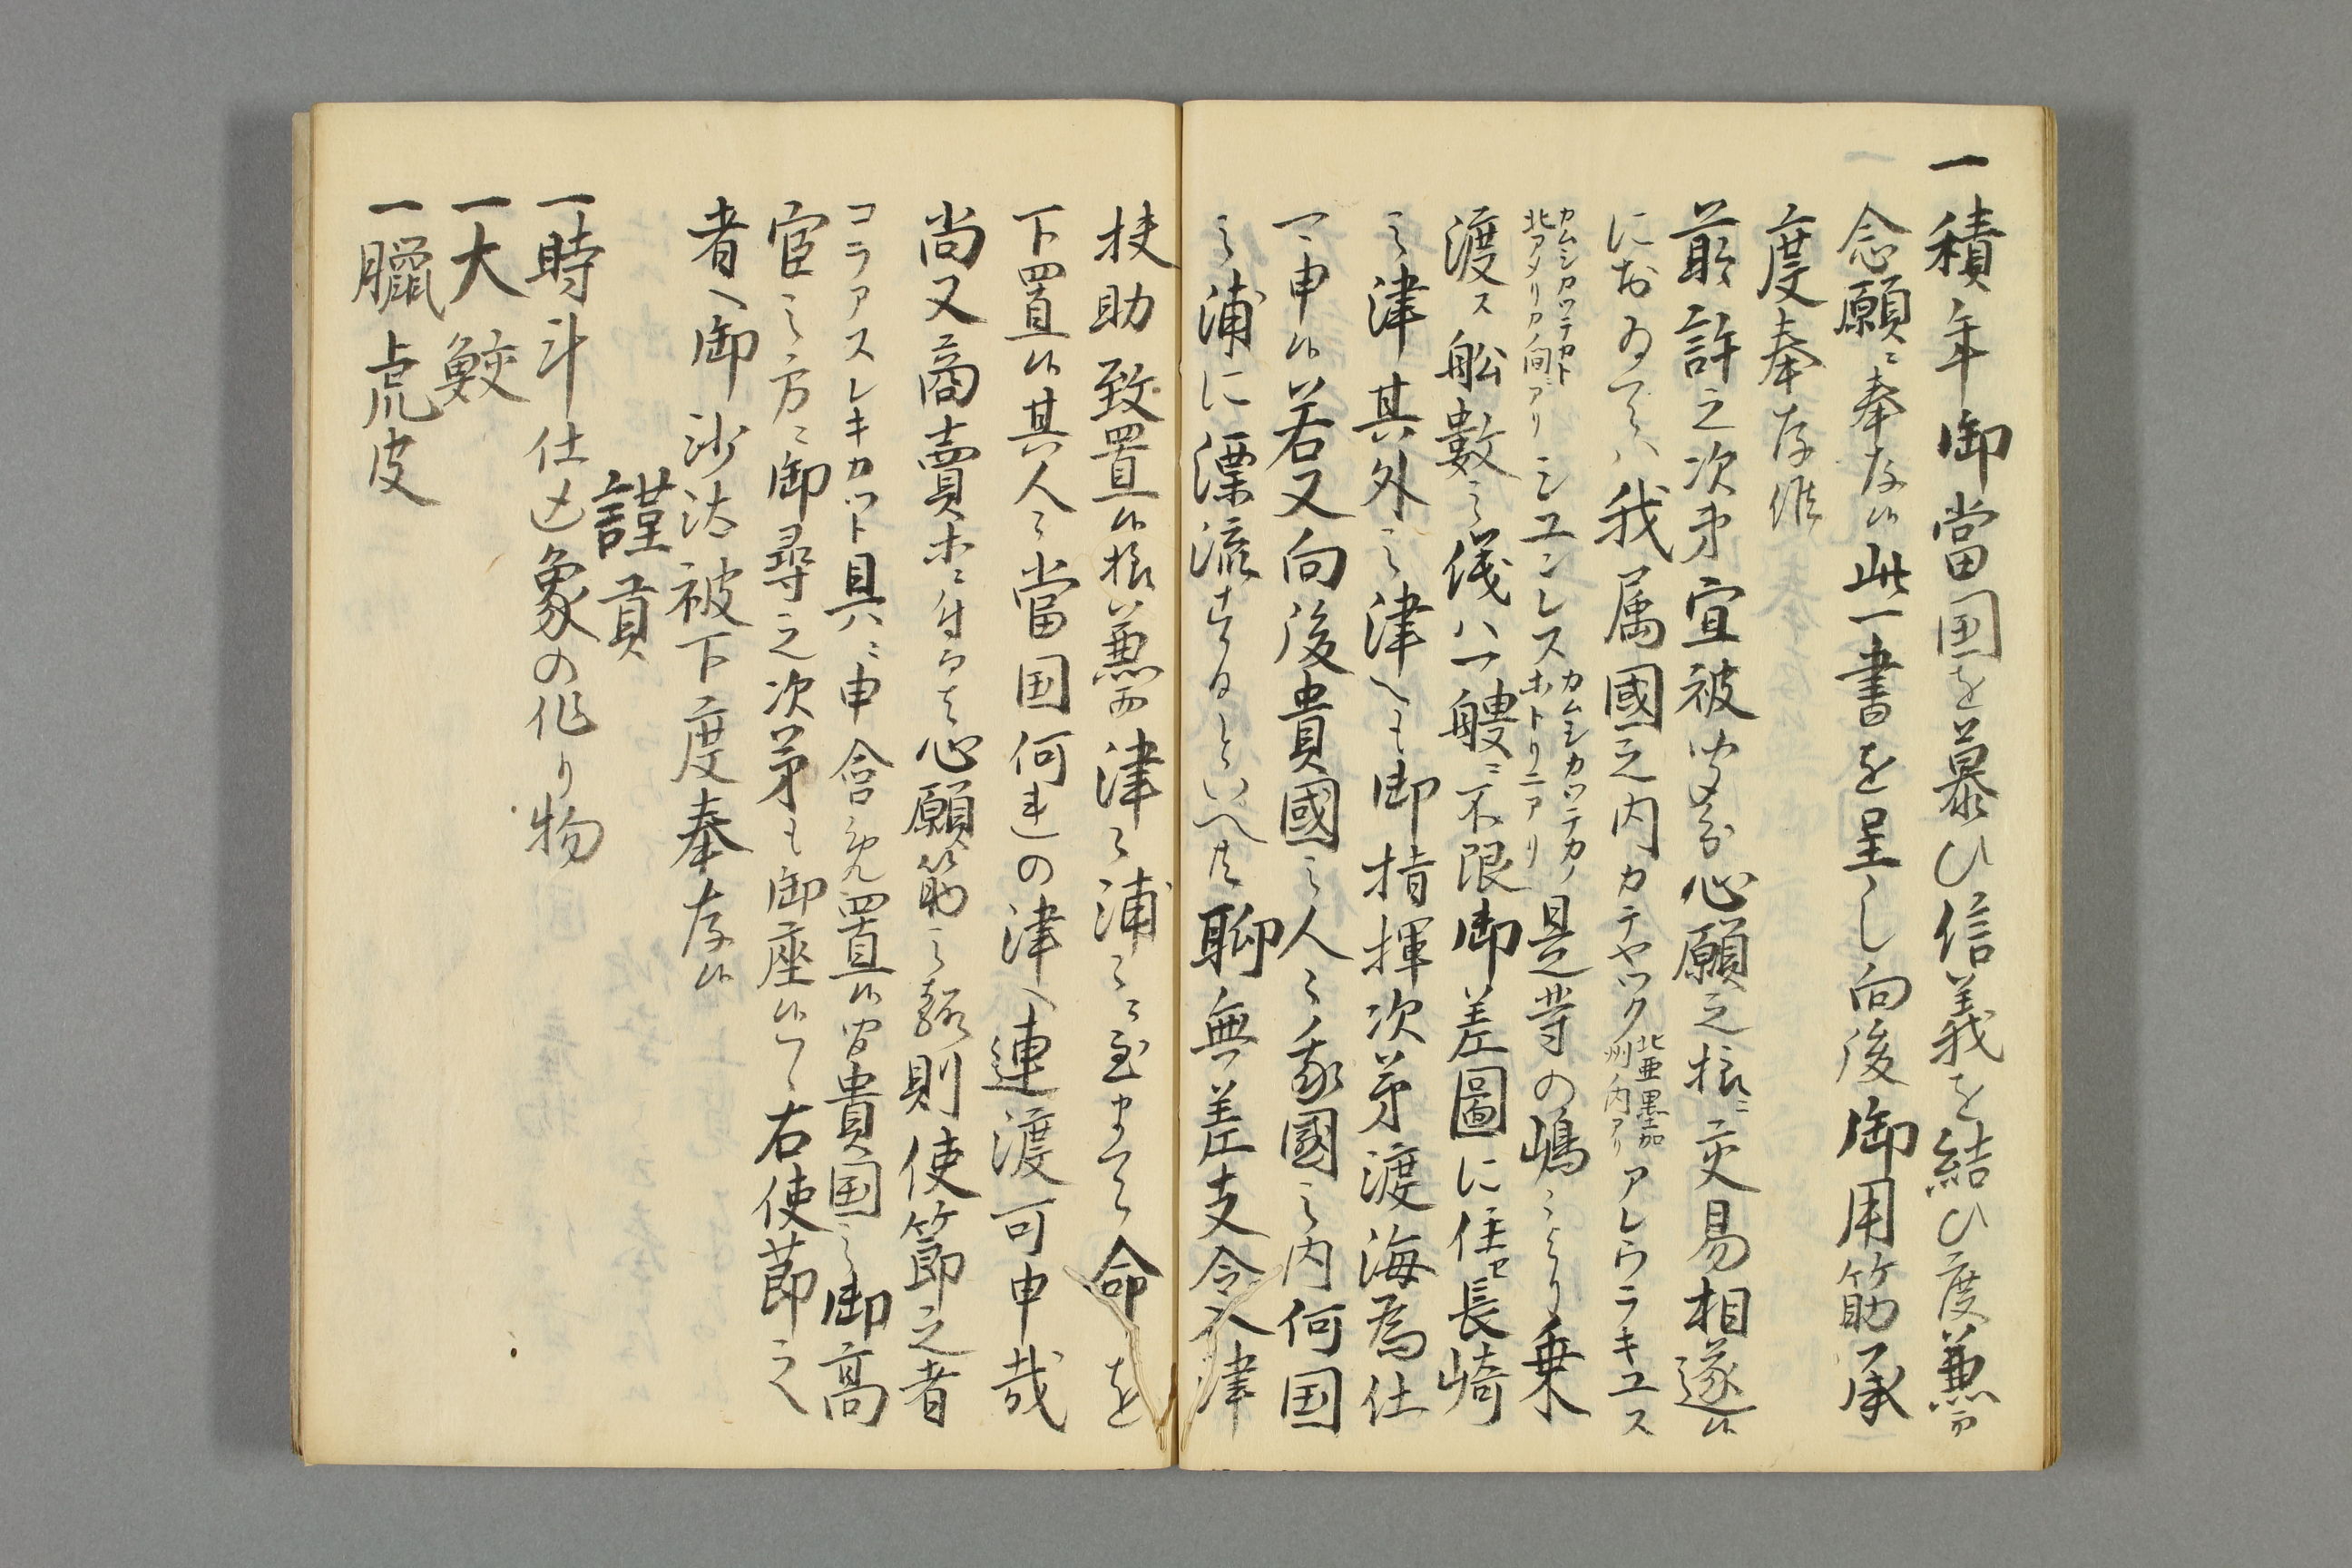 一積年御當国を慕ひ信義を結ひ度兼而
念願ニ奉存候此一書を呈し向後御用筋承
度奉存候
最許之次第宜被聞召心願之様ニ交易相遂候
におゐてハ我属國之内カテヤツク北亜墨加州ノ内アリアレウラキユス
カムシカツテカト北アメリカノ間ニアリシユンレスカムシカツテカノホトリニアリ是等の嶋ゟ乗
渡ス舩數之儀ハ一艘ニ不限御差圖に任セ長崎
之津其外之津へも御指揮次第渡海為仕
可申候若又向後貴國之人々我國之内何国
之浦に漂流するといへ共聊無差支令入津
扶助致置候様兼而津々浦々ニ至まて命を
下置候其人々當国何連の津へ連渡可申哉
尚又商賣等ニ付而之心願筋之趣則使節之者
コラアスレキカツト具ニ申含免置候間貴国之御高
官之方ニ御尋之次第も御座候ハヽ右使節之
者へ御沙汰被下度奉存候
謹貢
一時斗仕込象の作り物
一大鮫
一臘虎皮